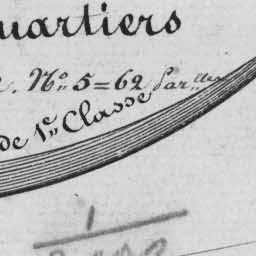 uartiers
. No. 5=62 Par.lles
de 1re Classe
1